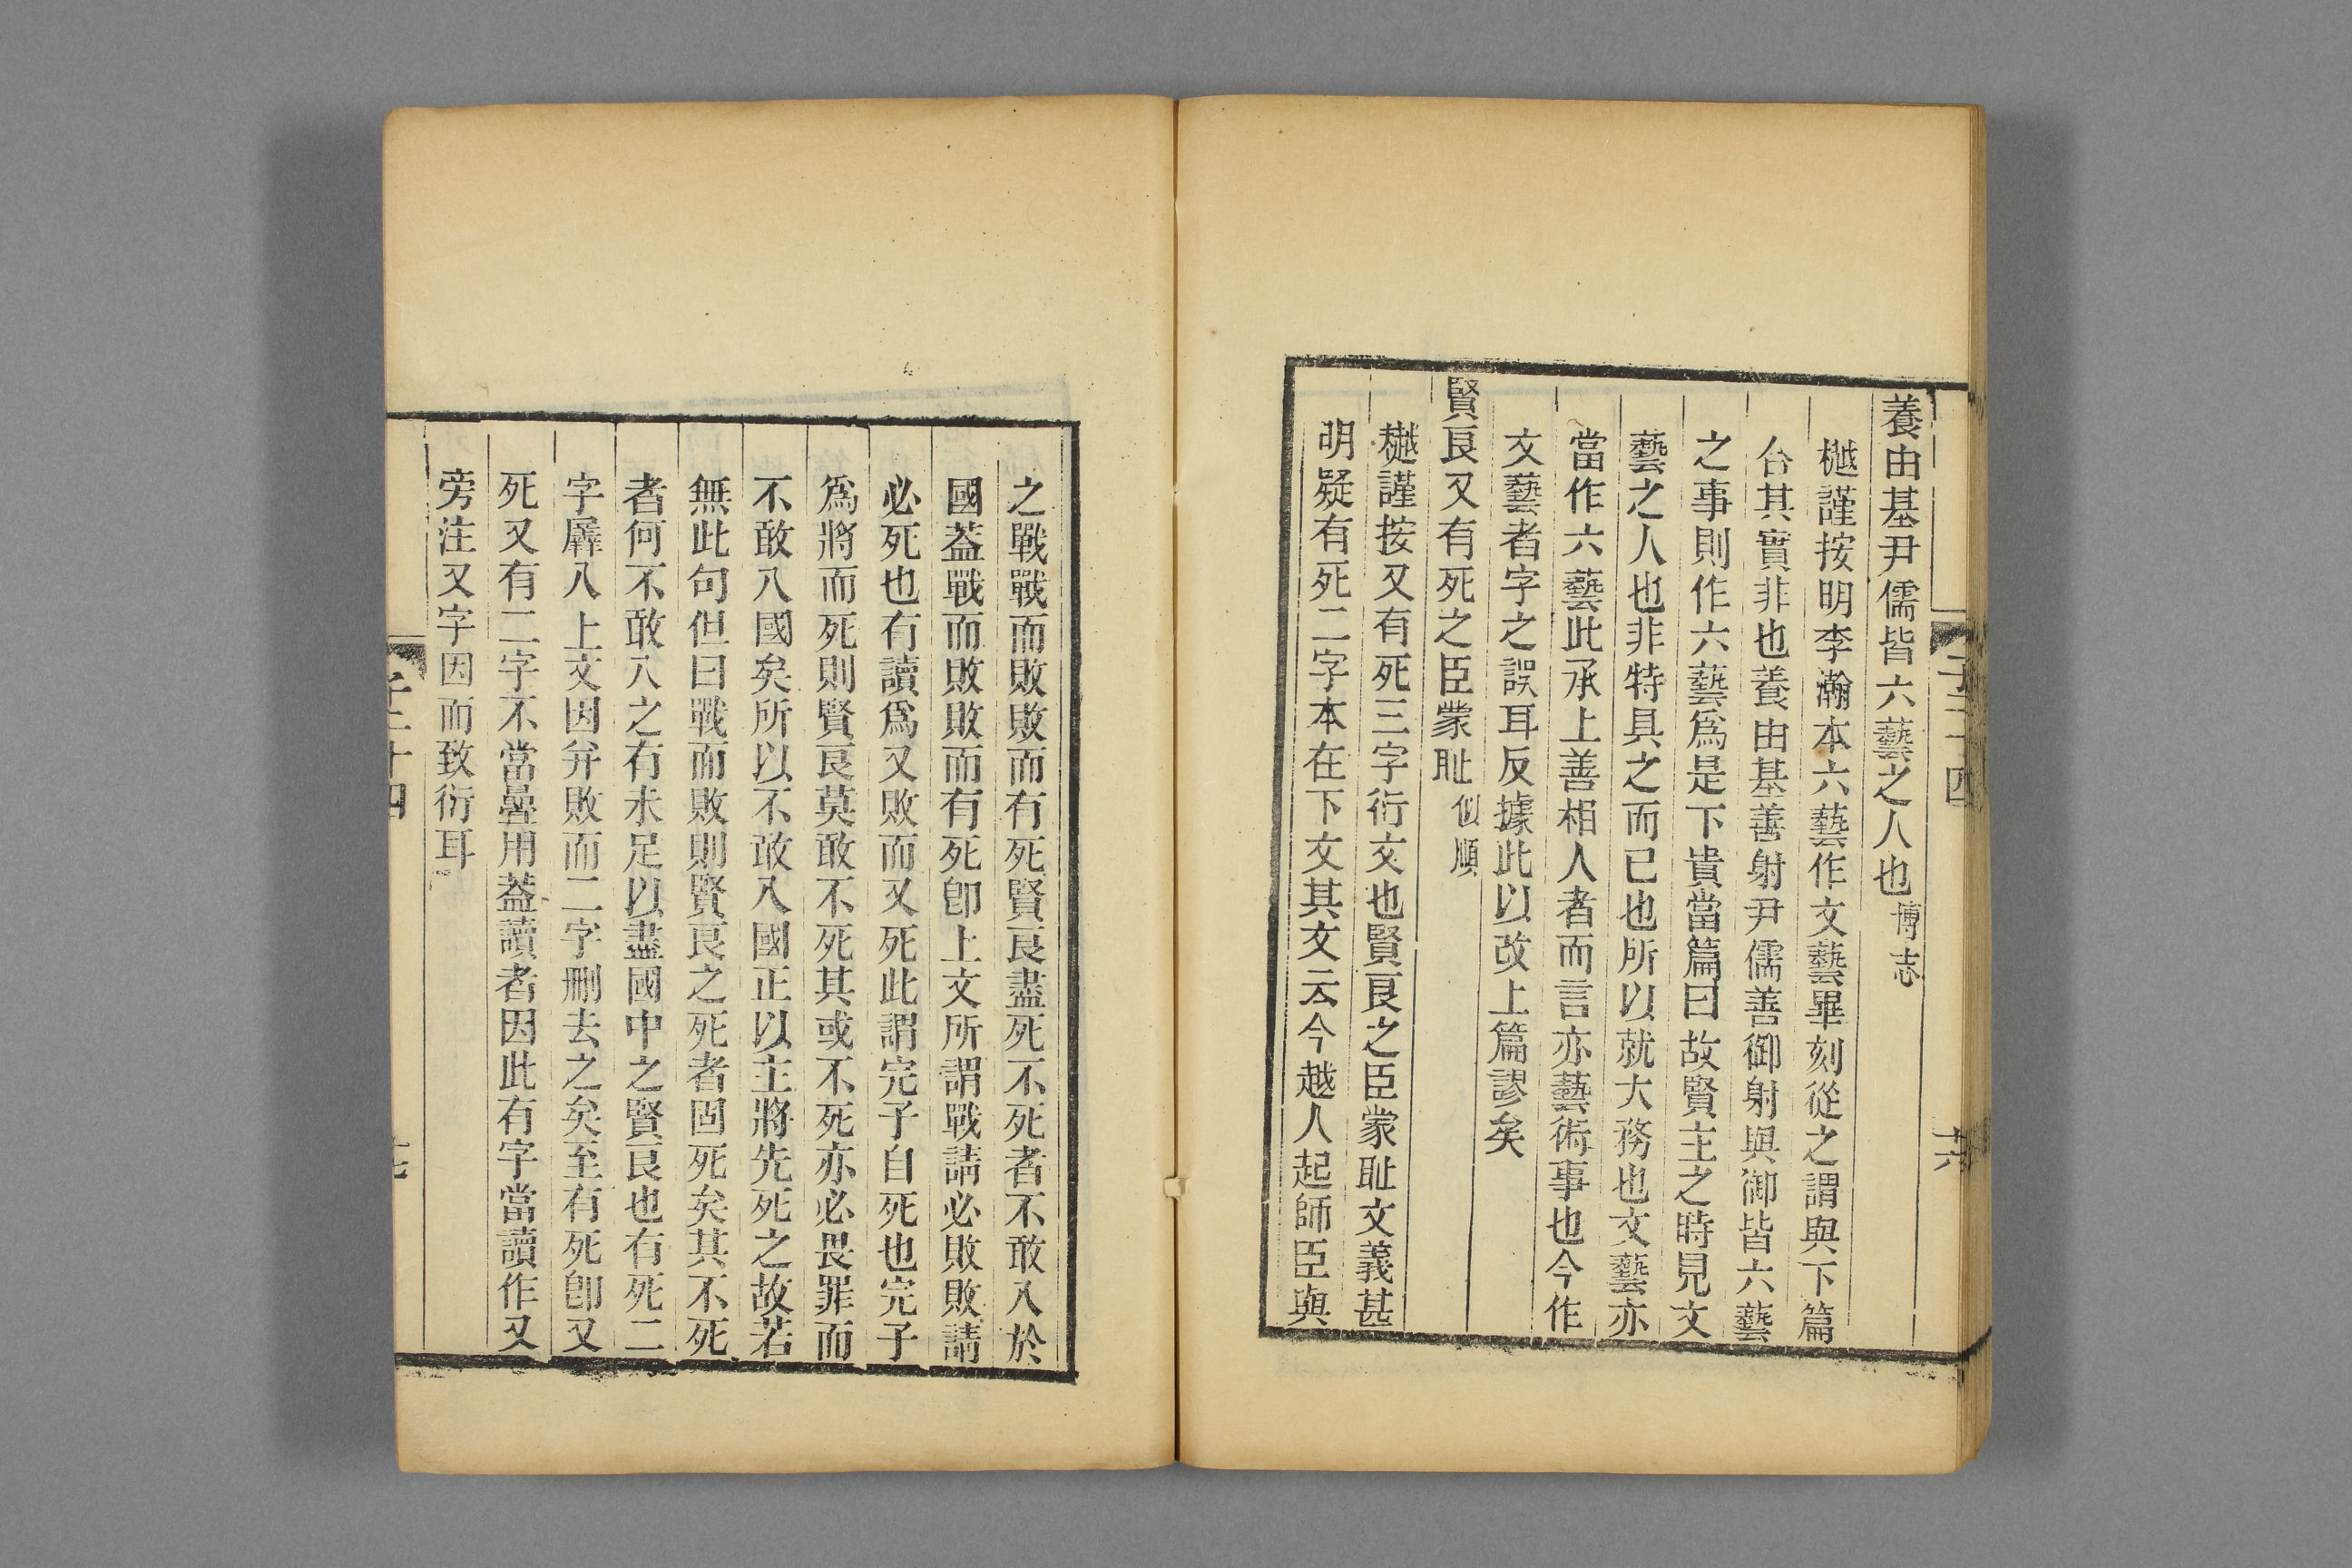 養由基尹儒皆六藝之人也博志
樾謹按明李瀚本六藝作文藝畢刻從之謂與下篇
合其實非也養由基善射尹儒善御射與御皆六藝
之事則作六藝爲是下貴當篇曰故賢主之時見文
藝之人也非特具之而已也所以就大務也文藝亦
當作六藝此承上善相人者而言亦藝術事也今作
文藝者字之誤耳反據此以改上篇謬矣
賢良又有死之臣蒙耻似順
樾謹按又有死三字衍文也賢良之臣蒙耻文義甚
明疑有死二字本在下文其文云今越人起師臣與
之戰戰而敗敗而有死賢良盡死不死者不敢入於
國葢戰而敗敗而有死卽上文所謂戰請必敗敗請
必死也有讀爲又敗而又死此謂完子自死也完子
爲將而死則賢良莫敢不死其或不死亦必畏罪而
不敢入國矣所以不敢入國正以主將先死之故若
無此句但曰戰而敗則賢良之死者固死矣其不死
者何不敢入之有未足以盡國中之賢良也有死二
字羼入上文因幷敗而二字刪去之矣至有死卽又
死又有二字不當疊用葢讀者因此有字當讀作又
旁注又字因而致衍耳
子二十四